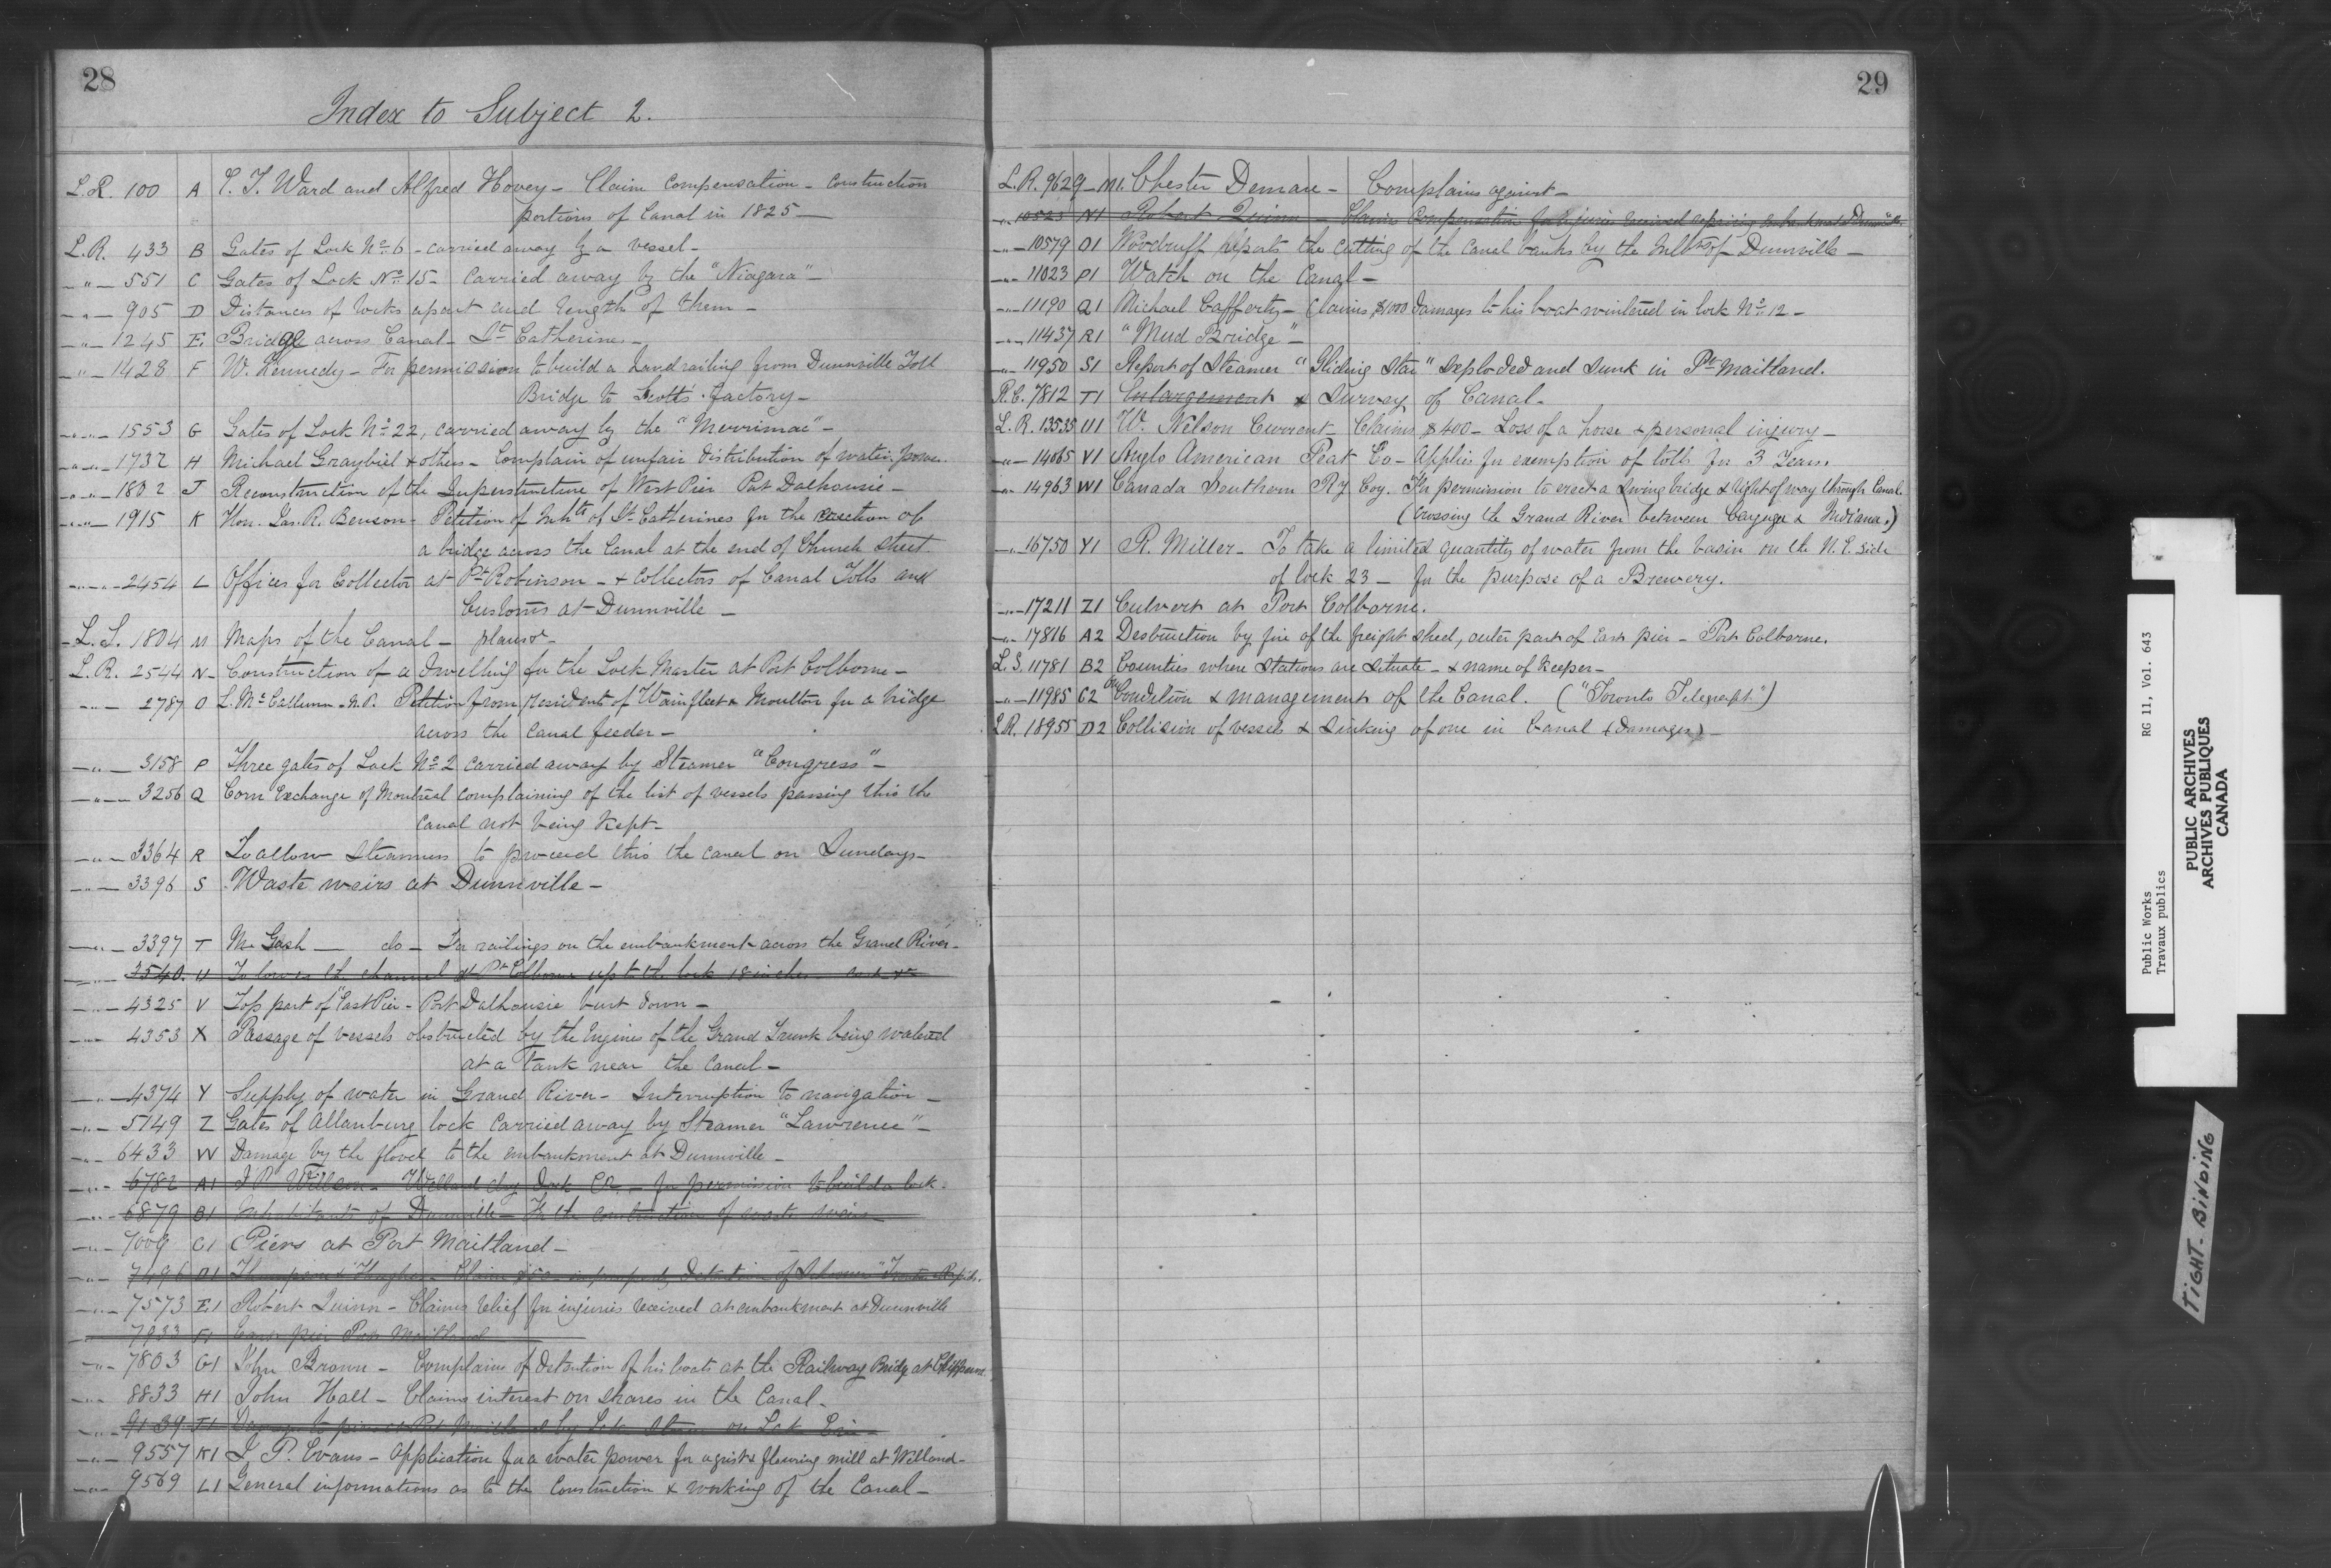 28
Index to Subject 2.
L.R. 100 A C. T. Ward and Alfred Hovey - Claim Compensation - Construction
portions of Canal in 1825 -
L.R. 433 B Gates of Lock No. 6 - carried away by a vessel -
-"- 551 C Gates of Lock No. 15 - carried away by the "Niagara" -
-"- 905 D Distances of locks apart and length of them -
-"- 1245 E. Bridge across Canal - St Catherines -
-"- 1428 F W. Kennedy - For permission to build a hand railing from Dunnville Toll
Bridge to Scott's factory -
-"- 1553 G Gates of Lock No. 22, carried away by the "Merrimac" -
-"- 1732 H Michael Graybiel & others - Complain of unfair distribution of water power
-"- 1802 J Reconstruction of the Superstructure of West Pier Port Dalhousie -
-"- 1915 K Hon. Jas. R. Benson - Petition of Inhts of St Catherines for the erection of
a bridge across the Canal at the end of Church Street
-"- 2454 L Offices for Collector at Pt Robinson - & Collectors of Canal Tolls and
Customs at Dunnville -
L.S. 1804 M Maps of the Canal - plans &c -
L.R. 2544 N - Construction of a dwelling for the Lock Master at Port Colborne -
-"- 2787 O L. McCallum M.P. Petition from residents of Wainfleet & Moulton for a bridge
across the canal feeder -
-"- 3158 P Three gates of Lock No. 2 carried away by Steamer "Congress" -
-"- 3256 Q Corn Exchange of Montreal complaining of the list of vessels passing thro the
canal not being kept -
-"- 3364 R To allow steamers to proceed thro the canal on Sundays -
-"- 3396 S Waste weirs at Dunnville -
-"- 3397 T Mr Gash - do - For railings on the embankment across the Grand River -
-"- 3540. U To lower the channel at Pt Colborne up to the lock 18 inches
-"- 4325 V Top part of East Pier - Port Dalhousie burt down -
-"- 4353 X Passage of vessels obstructed by the Engines of the Grand Trunk being watered
at a Tank near the Canal -
-"- 4374 Y Supply of water in Grand River - Interruption to navigation -
-"- 5749 Z Gates of Allanburg lock carried away by Steamer "Lawrence" -
-"- 6433 W Damage by the flood to the embankment at Dunnville -
-"- 6782 A1 Willson - Welland dry dock Co. - for permission to build a lock -
-"- 6879 B1 Inhabitants of Dunnville - For the construction of waste weirs -
-"- 7009 C1 Piers at Port Maitland -
-"- 7496 D1 Hughes - Claim detention of Schooner
-"- 7573 E1 Robert Quinn - Claims relief for injuries received at embankment at Dunnville
7933 F1 pier Port Maitland
-"- 7803 G1 John Brown - Complains of detention of his boats at the Railway Bridge at Chippawa
-"- 8833 H1 John Hall - Claims interest on shares in the Canal -
-"- 9139 J1 Damage to pier at Pt Maitland by late storm on Lake Erie -
-"- 9557 K1 J. P. Evans - Application for a water power for a grist & flouring mill at Welland -
-"- 9569 L1 General informations as to the Construction & working of the Canal -
29
L.R. 9629 - M1. Chester Demare - Complains against -
-"- 10523 N1 Robert Quinn - Claims Compensation for injuries received repairing
-"- 10579 O1 Woodruff reports the cutting of the canal banks by the Inhts of Dunnville -
-"- 11023 P1 Watch on the Canal -
-"- 11190 Q1 Michael Cafferty - Claims $1000 damages to his boat wintered in lock No. 12 -
-"- 11437 R1 "Mud Bridge" -
-"- 11950 S1 Report of Steamer "Gliding Star" Exploded and sunk in Pt Maitland.
R.C. 7812 T1 Enlargement & Survey of Canal -
L.R. 13535 U1 W. Nelson Current - Claims $400 - Loss of a horse & personal injury -
-"- 14065 V1 Anglo American Peat Co - Applies for exemption of tolls for 3 Years.
-"- 14963 W1 Canada Southern Ry Coy. For permission to erect a swing bridge & right of way through Canal.
(crossing the Grand River between Cayuga & Indiana.)
-"- 16750 Y1 R. Miller - To take a limited quantity of water from the basin on the N.E. side
of lock 23 - for the purpose of a Brewery.
-"- 17211 Z1 Culvert at Port Colborne.
-"- 17816 A2 Destruction by fire of the freight shed, outer part of East pier - Port Colborne.
L.S. 11781 B2 Counties where Stations are situate - & name of Keeper -
-"- 11985 C2 On Condition & management of the Canal. ("Toronto Telegraph")
L.R. 18955 D2 Collision of vessels & sinking of one in Canal (Damages) -
Public Works RG 11, Vol. 643
Travaux publics
PUBLIC ARCHIVES
ARCHIVES PUBLIQUES
CANADA
TIGHT-BINDING